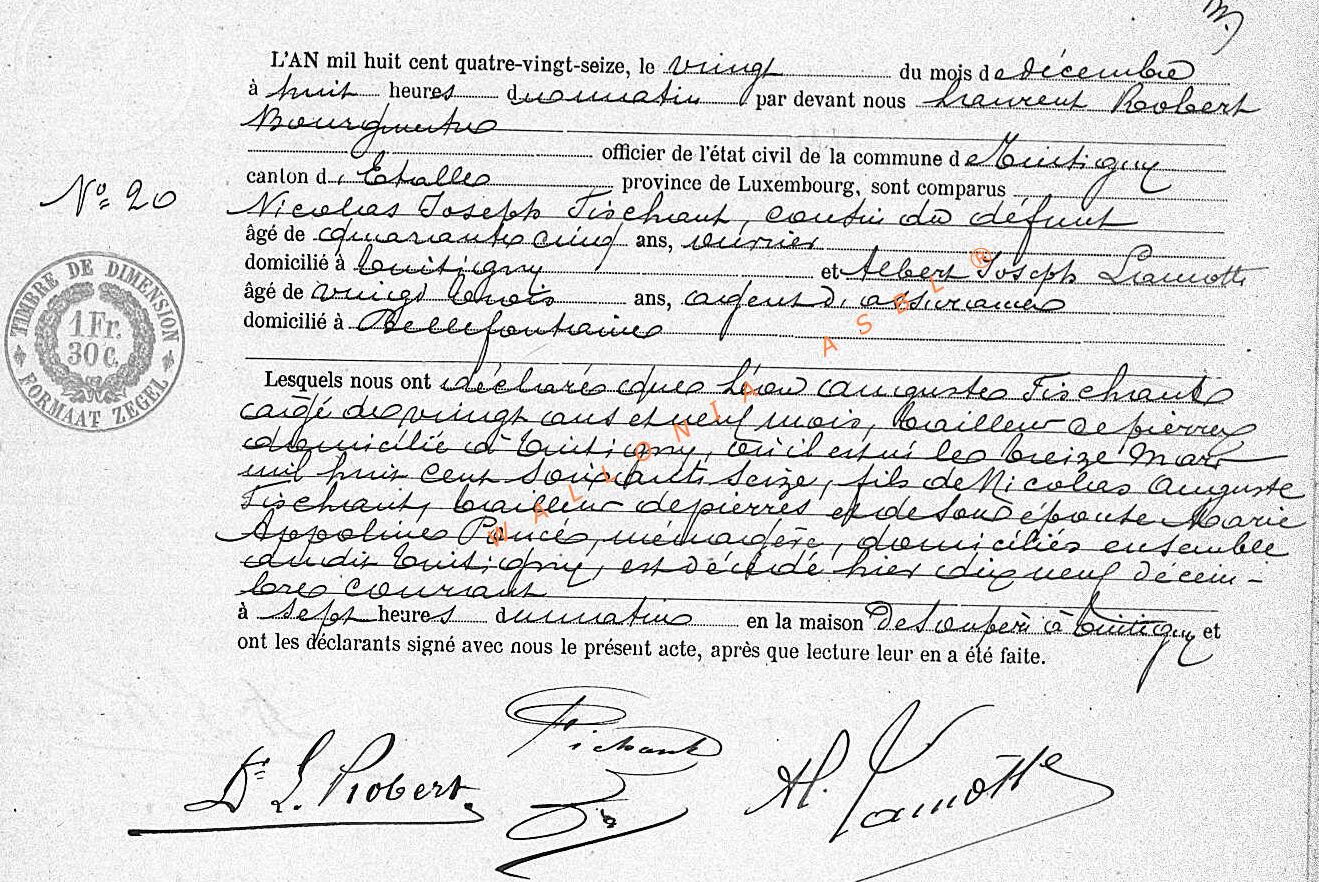 L'AN mil huit cent quatre-vingt-seize, le vingt du mois de décembre
à huit heures du matin par devant nous Laurent Robert
Bourgmestre
officier de l'état civil de la commune de Tintigny
canton d'Etalle province de Luxembourg, sont comparus
N° 20
Nicolas Joseph Fischant, cousin du défunt
âgé de quarante cinq ans, ouvrier
domicilié à Tintigny et Albert Joseph Lamotte
âgé de vingt trois ans, agent d'assurances
domicilié à Bellefontaine
TIMBRE DE DIMENSION
1 Fr.
30 c.
FORMAAT ZEGEL
Lesquels nous ont déclaré que Léon Auguste Fischant
âgé de vingt ans et neuf mois, tailleur de pierres
domicilié à Tintigny, où il est né le treize Mars
mil huit cent soixante seize, fils de Nicolas Auguste
Fischant, tailleur de pierres et de son épouse Marie
Appoline Poncé, ménagère, domiciliés ensemble
audit Tintigny, est décédé hier dix neuf décem-
bre courant
à sept heures du matin en la maison de son père à Tintigny et
ont les déclarants signé avec nous le présent acte, après que lecture leur en a été faite.
Dr L. Robert Fichant Al. Lamotte
WALLONIA ASBL ®